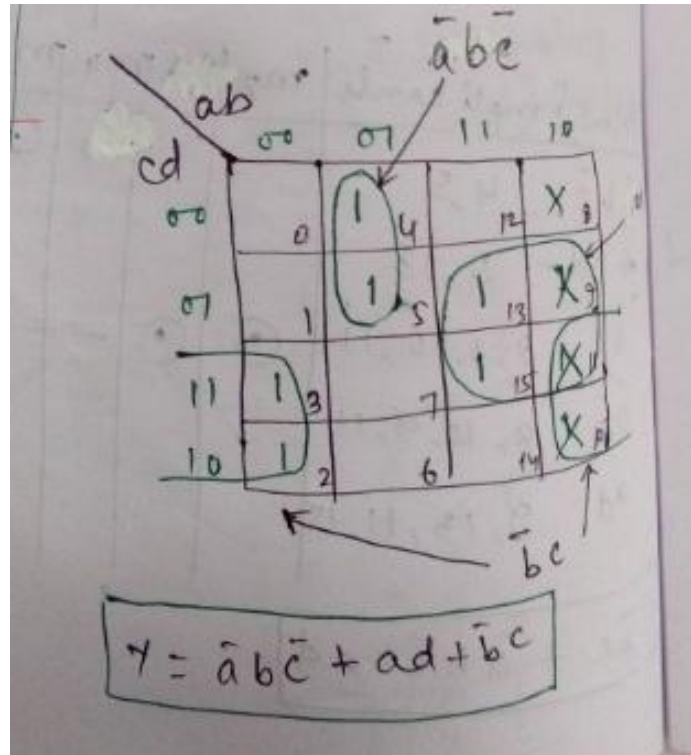 a̅bc̅
ab
00 01 11 10
cd
00 0 1 4 12 X 8
01 1 1 5 1 13 X 9
11 1 3 7 1 15 X 11
10 1 2 6 14 X
b̅c
Y = a̅bc̅ + ad + b̅c